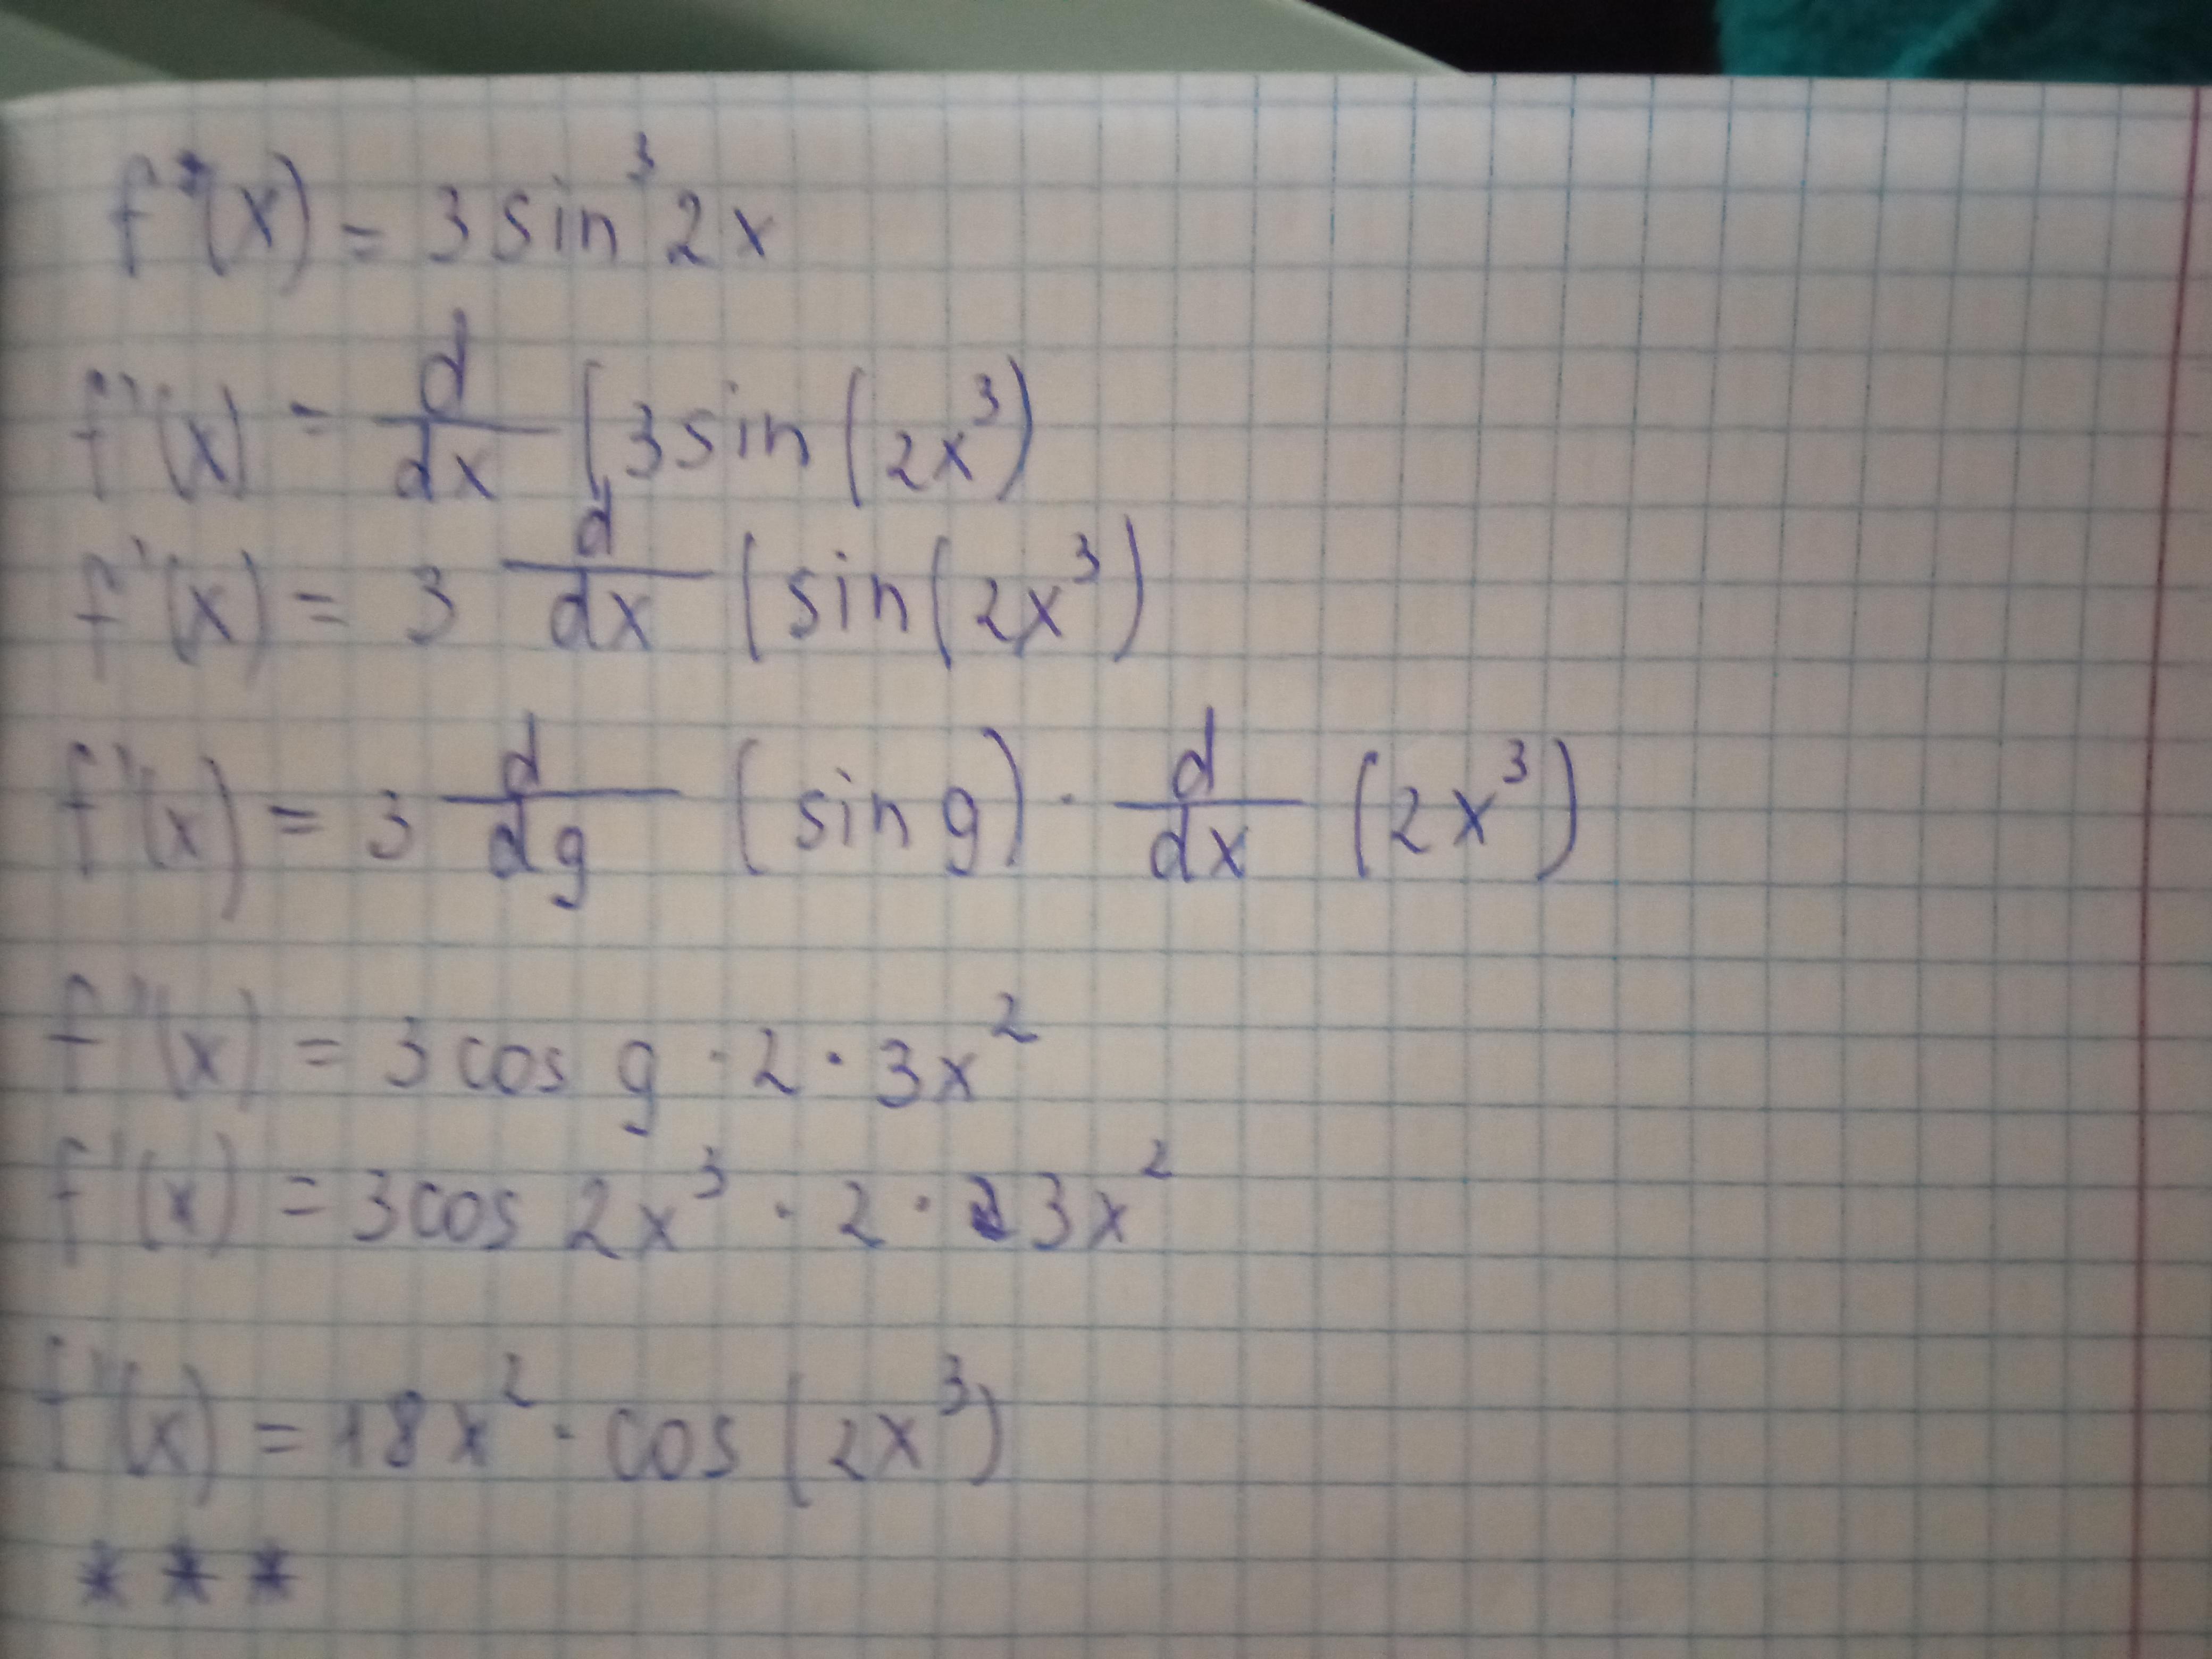 f'(x) = 3 sin³ 2x
f'(x) = d/dx (3 sin (2x³)
f'(x) = 3 d/dx (sin (2x³)
f'(x) = 3 d/dg (sin g) · d/dx (2x³)
f'(x) = 3 cos g · 2 · 3x²
f'(x) = 3 cos 2x³ · 2 · 3x²
f'(x) = 18x² · cos (2x³)
* * *